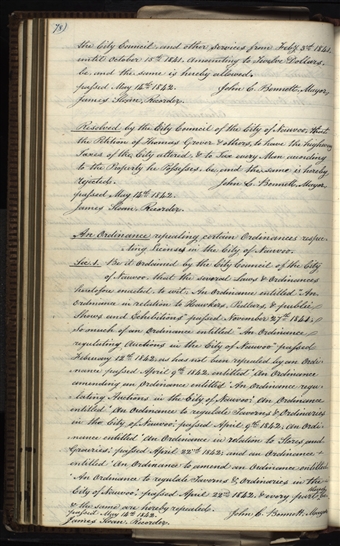 78)
the City Council, and other services from Feby 3rd 1841.
until October 15th 1841. amounting to Twelve Dollars.
be and the same is hereby allowed.
passed May 14th 1842. John C. Bennett, Mayor.
James Sloan, Recorder.
Resolved by the City Council of the City of Nauvoo, that
the Petition of Thomas Grover & others, to have the highway
Taxes of the City altered, & to Tax every Man according
to the Property he Possesses be, and the same is hereby
rejected. John C. Bennett, Mayor
passed May 14th 1842.
James Sloan, Recorder.
An Ordinance repealing certain Ordinances respec-
ting Licenses in the City of Nauvoo.
Sec. 1. Be it ordained by the City Council of the City
of Nauvoo that the several Laws & Ordinances
heretofore enacted to wit; An Ordinance entitled "An
Ordinance in relation to Hawkers, Pedlers, & public
Shows and Exhibitions" passed November 27th 1841;
so much of an Ordinance entitled "An Ordinance
regulating Auctions in the City of Nauvoo" passed
February 12th 1842, as has not been repealed by an Ordi-
nance passed April 9th 1842, entitled "An Ordinance
amending an Ordinance entitled 'An Ordinance regu-
lating Auctions in the City of Nauvoo'; An Ordinance
entitled "An Ordinance to regulate Taverns & Ordinaries
in the City of Nauvoo", passed April 9th 1842; an Ordi-
nance entitled "An Ordinance in relation to Stores and
Groceries", passed April 22nd 1842; and an Ordinance
entitled "An Ordinance to amend an Ordinance entitled
"An Ordinance to regulate Taverns & Ordinaries in the
City of Nauvoo", passed April 22nd 1842. & every part
& the same are hereby repealed.
passed May 14th 1842. John C. Bennett, Mayor
James Sloan, Recorder.